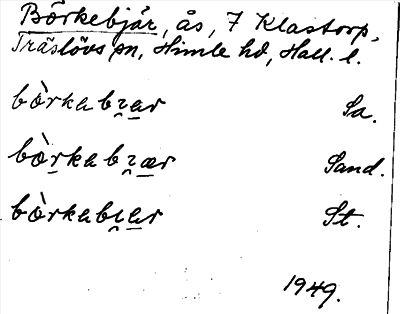 Börkebjär, ås, 7 Klastorp,
Träslövs sn, Himle hd, Hall. l.
bòrkabɪ̯a̲r Sa.
bòr̲kabɪ̯æ̲r Sand.
bòrkabɪ̯a̲r St.
1949.